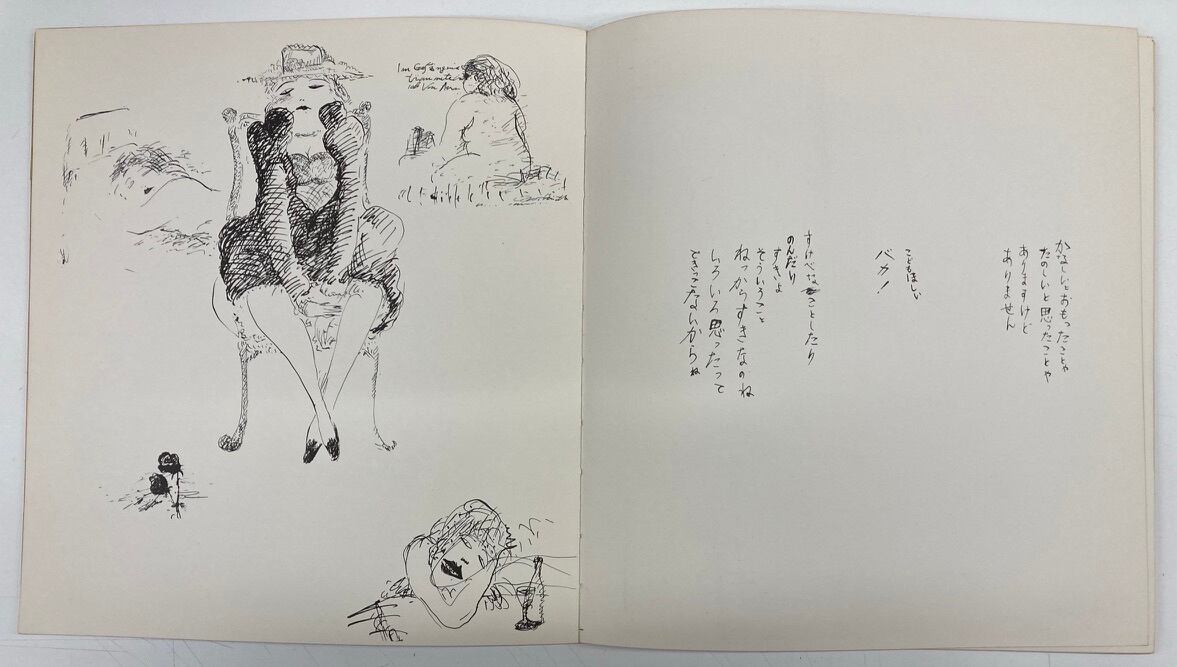 かなしいとおもったことや
たのしいと思ったことや
ありますけど
ありません
こどもほしい
バカ!
すけべなことしたり
のんだり
すきよ
そういうこと
ねっからすきなのね
いろいろ思ったって
できっこないからね